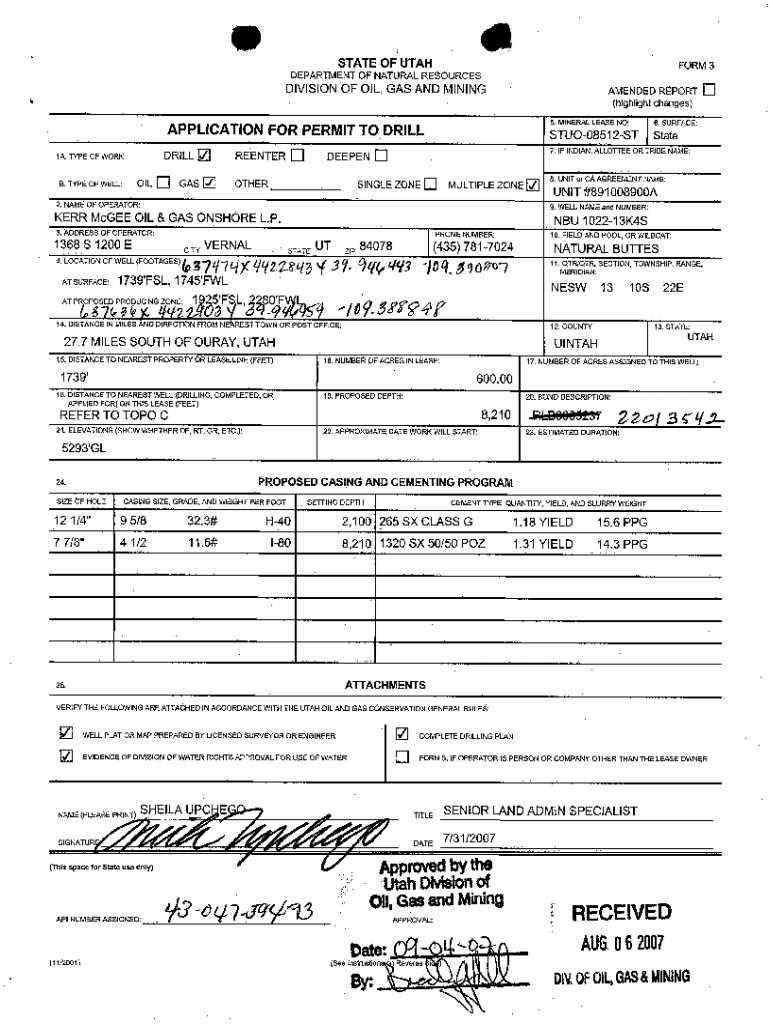 STATE OF UTAH
DEPARTMENT OF NATURAL RESOURCES
DIVISION OF OIL, GAS AND MINING
FORM 3
AMENDED REPORT
(highlight changes)
APPLICATION FOR PERMIT TO DRILL
5. MINERAL LEASE NO:
STUO-08512-ST
6. SURFACE:
State
1A. TYPE OF WORK:
DRILL ☑ REENTER ☐ DEEPEN ☐
7. IF INDIAN, ALLOTTEE OR TRIBE NAME:
B. TYPE OF WELL: OIL ☐ GAS ☑ OTHER SINGLE ZONE ☐ MULTIPLE ZONE ☑
8. UNIT or CA AGREEMENT NAME:
UNIT #891008900A
2. NAME OF OPERATOR:
KERR McGEE OIL & GAS ONSHORE L.P.
9. WELL NAME and NUMBER:
NBU 1022-13K4S
3. ADDRESS OF OPERATOR:
1368 S 1200 E CITY VERNAL STATE UT ZIP 84078
PHONE NUMBER:
(435) 781-7024
10. FIELD AND POOL, OR WILDCAT:
NATURAL BUTTES
4. LOCATION OF WELL (FOOTAGES)
637474X 4422843Y 39.946443 -109.390807
AT SURFACE: 1739'FSL, 1745'FWL
AT PROPOSED PRODUCING ZONE: 1925'FSL, 2280'FWL
637636X 4422903Y 39.946959 -109.388898
11. QTR/QTR, SECTION, TOWNSHIP, RANGE, MERIDIAN:
NESW 13 10S 22E
14. DISTANCE IN MILES AND DIRECTION FROM NEAREST TOWN OR POST OFFICE:
27.7 MILES SOUTH OF OURAY, UTAH
12. COUNTY
UINTAH
13. STATE:
UTAH
15. DISTANCE TO NEAREST PROPERTY OR LEASE LINE (FEET)
1739'
16. NUMBER OF ACRES IN LEASE:
600.00
17. NUMBER OF ACRES ASSIGNED TO THIS WELL:
18. DISTANCE TO NEAREST WELL (DRILLING, COMPLETED, OR
APPLIED FOR) ON THIS LEASE (FEET)
REFER TO TOPO C
19. PROPOSED DEPTH:
8,210
20. BOND DESCRIPTION:
22013542
21. ELEVATIONS (SHOW WHETHER DF, RT, GR, ETC.):
5293'GL
22. APPROXIMATE DATE WORK WILL START:
23. ESTIMATED DURATION:
24. PROPOSED CASING AND CEMENTING PROGRAM
SIZE OF HOLE CASING SIZE, GRADE, AND WEIGHT PER FOOT SETTING DEPTH CEMENT TYPE, QUANTITY, YIELD, AND SLURRY WEIGHT
12 1/4" 9 5/8 32.3# H-40 2,100 265 SX CLASS G 1.18 YIELD 15.6 PPG
7 7/8" 4 1/2 11.6# I-80 8,210 1320 SX 50/50 POZ 1.31 YIELD 14.3 PPG
25. ATTACHMENTS
VERIFY THE FOLLOWING ARE ATTACHED IN ACCORDANCE WITH THE UTAH OIL AND GAS CONSERVATION GENERAL RULES:
☑ WELL PLAT OR MAP PREPARED BY LICENSED SURVEYOR OR ENGINEER ☑ COMPLETE DRILLING PLAN
☑ EVIDENCE OF DIVISION OF WATER RIGHTS APPROVAL FOR USE OF WATER ☐ FORM 5, IF OPERATOR IS PERSON OR COMPANY OTHER THAN THE LEASE OWNER
NAME (PLEASE PRINT) SHEILA UPCHEGO TITLE SENIOR LAND ADMIN SPECIALIST
SIGNATURE DATE 7/31/2007
(This space for State use only)
Approved by the
Utah Division of
Oil, Gas and Mining
API NUMBER ASSIGNED: 43-047-39493
APPROVAL:
RECEIVED
AUG 06 2007
DIV. OF OIL, GAS & MINING
Date: 09-04-07
(11/2001)
(See Instructions on Reverse Side)
By: